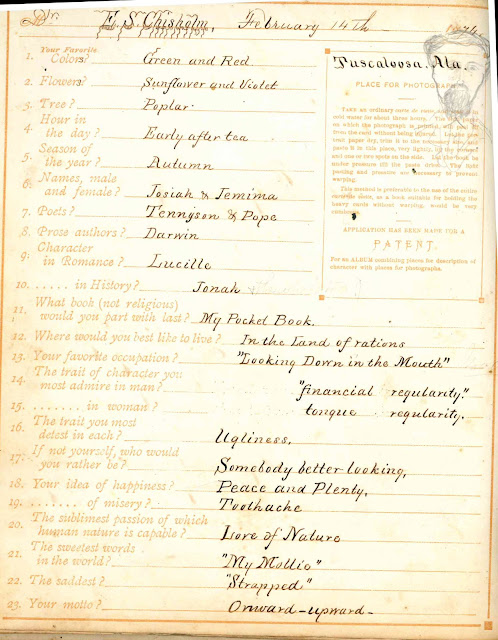 Dr. E. S. Chisholm, February 14th
Your Favorite
1. Colors? Green and Red.
2. Flowers? Sunflower and Violet
3. Tree? Poplar.
4. Hour in
the day? Early after tea
5. Season of
the year? Autumn
6. Names, male
and female? Josiah & Jemima
7. Poets? Tennyson & Pope
8. Prose authors? Darwin
9. Character
in Romance? Lucille
10. ...... in History? Jonah
11. What book (not religious)
would you part with last? My Pocket Book.
12. Where would you best like to live? In the Land of rations
13. Your favorite occupation? "Looking Down in the Mouth"
14. The trait of character you
most admire in man? "financial regularity."
15. ........ in woman? tongue regularity.
16. The trait you most
detest in each? Ugliness.
17. If not yourself, who would
you rather be? Somebody better looking,
18. Your idea of happiness? Peace and Plenty,
19. ........ of misery? Toothache
20. The sublimest passion of which
human nature is capable? Love of Nature
21. The sweetest words
in the world? "My Mollie"
22. The saddest? "Strapped"
23. Your motto? Onward-upward-
Tuscaloosa, Ala.
PLACE FOR PHOTOGRAPH
TAKE an ordinary carte de visite, and
cold water for about three hours. The
on which the photograph is printed, will
from the card without being torn. Let the
per dry, trim it to the size, and
paste it in this place, very lightly,
and one or two spots on the side. Let the book be
under pressure till the paste dries. The light
pasting and pressure are necessary to prevent
warping.
This method is preferable to the use of the entire
carte de visite, as a book suitable for holding the
heavy cards without warping, would be very
APPLICATION HAS BEEN MADE FOR A
PATENT.
For an ALBUM combining places for description of
character with places for photographs.